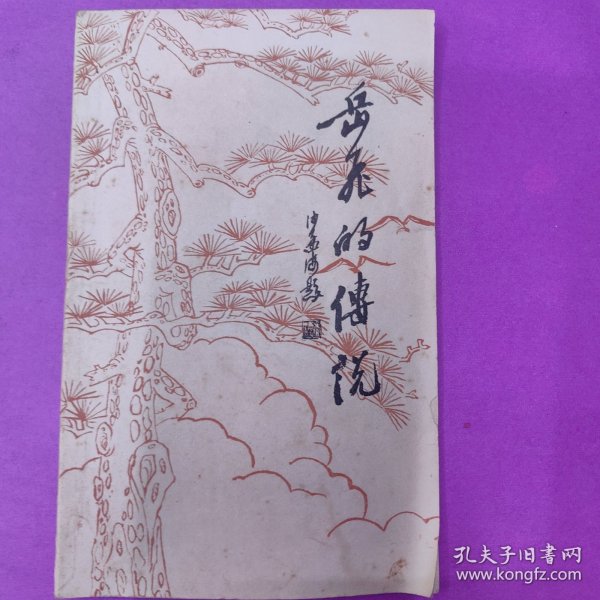 岳飞的傳说
沙孟海题
孔夫子旧书网
www.kongfz.com